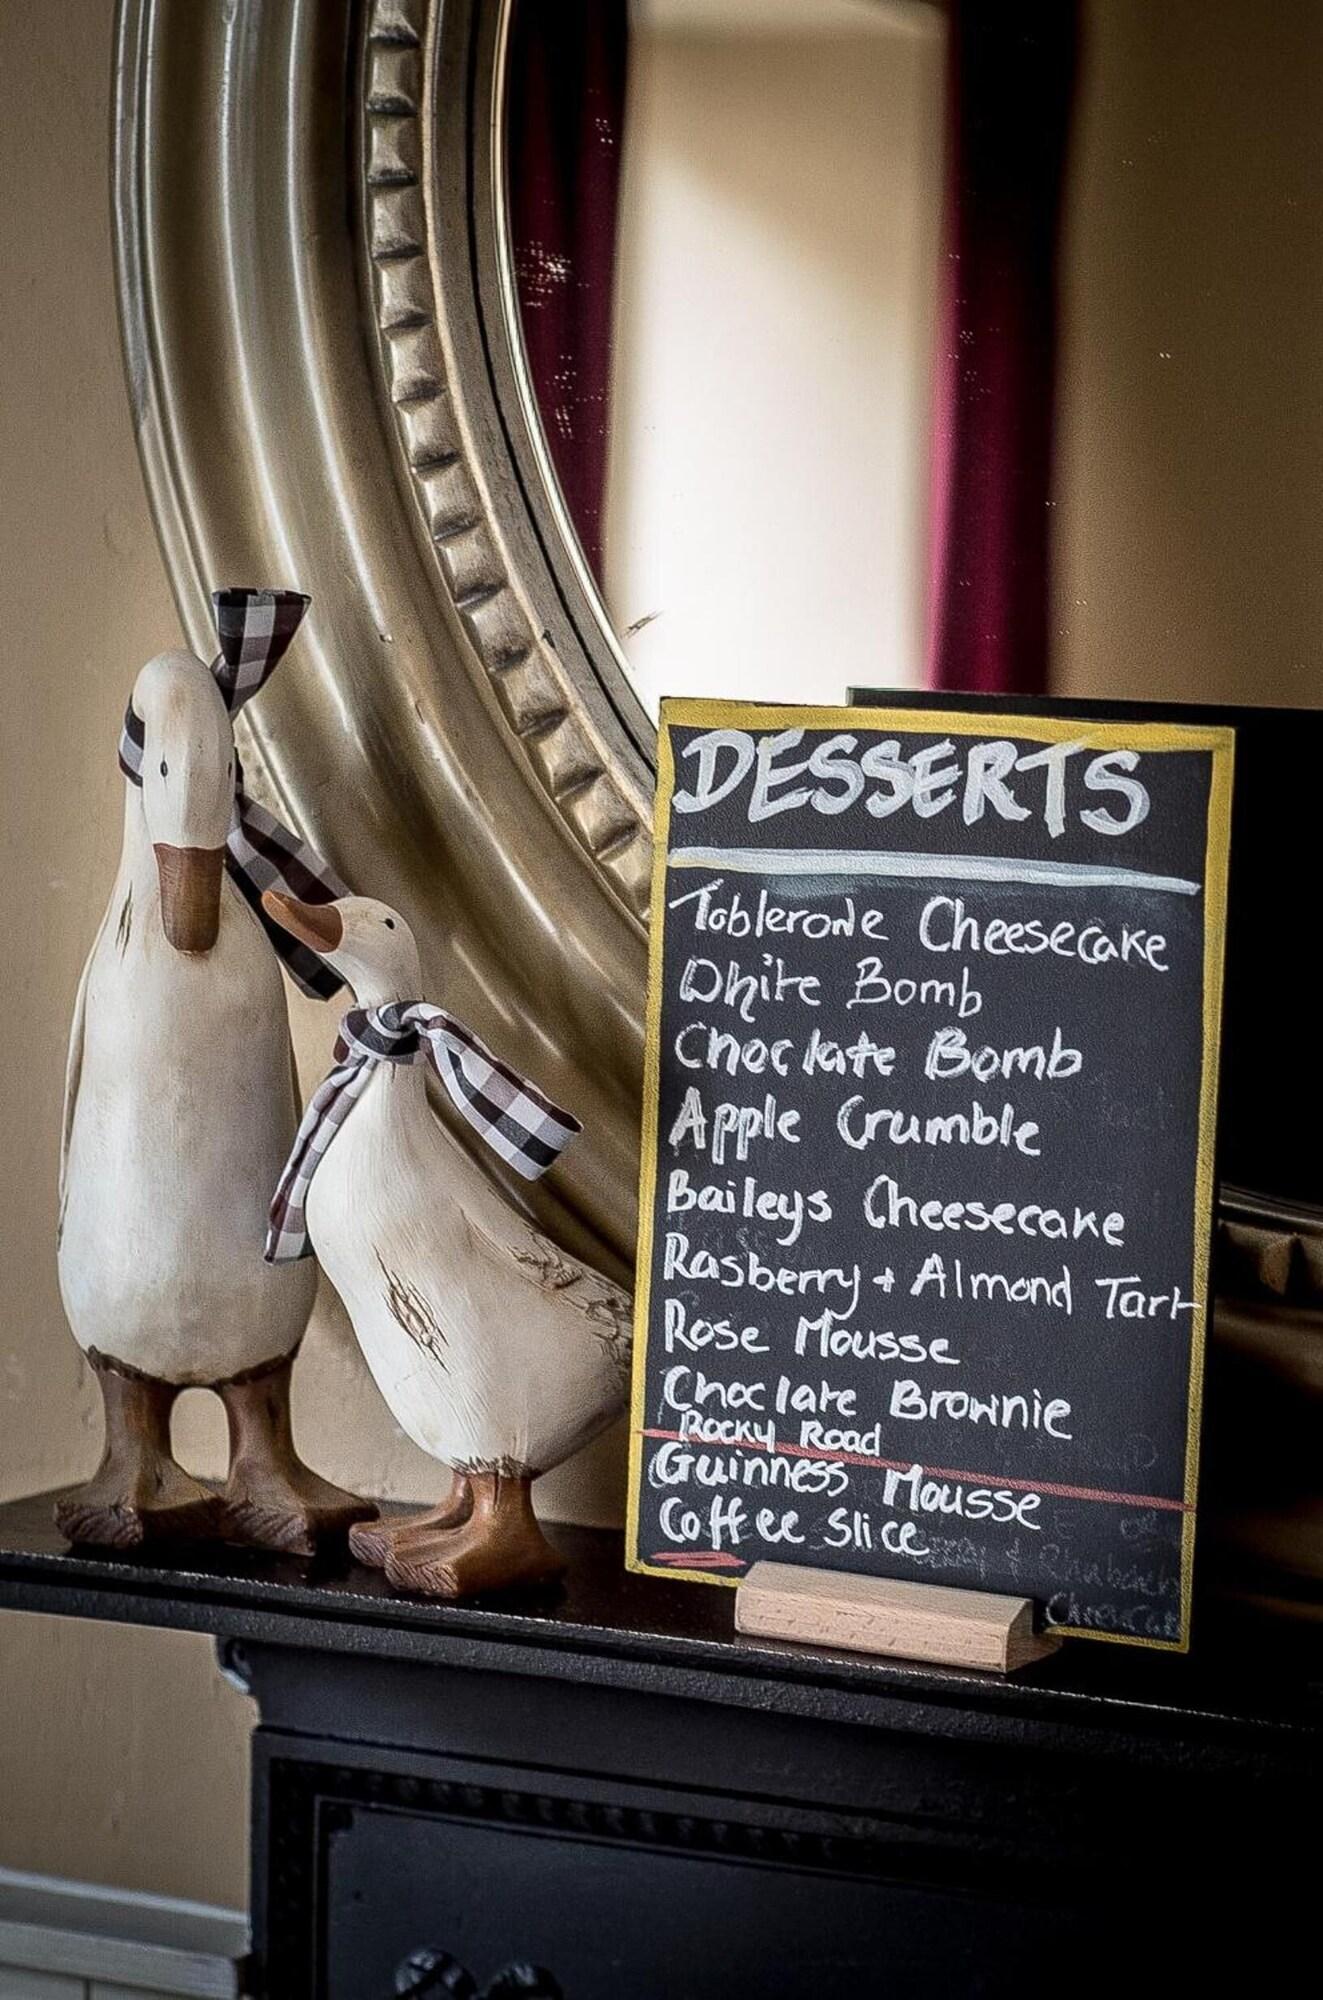 DESSERTS
Toblerone Cheesecake
White Bomb
Choclate Bomb
Apple Crumble
Baileys Cheesecake
Rasberry + Almond Tart
Rose Mousse
Choclate Brownie
Rocky Road
Guinness Mousse
Coffee Slice